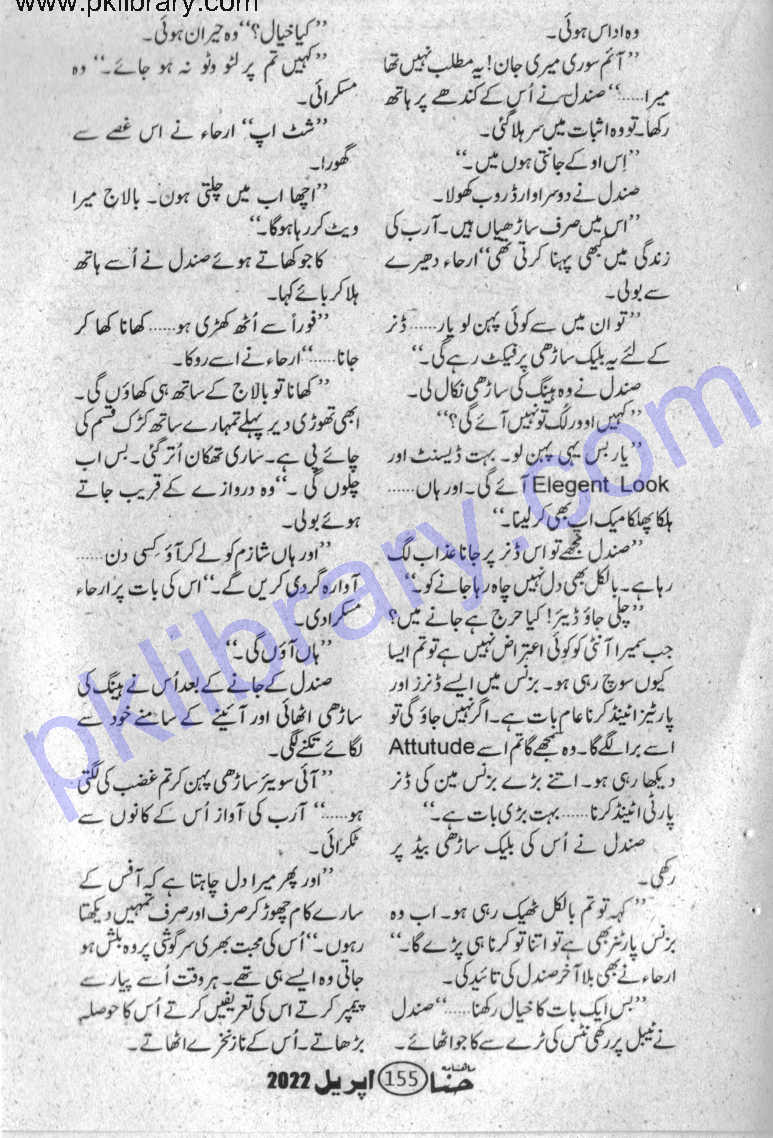 www.pklibrary.com
وہ اداس ہوئی۔
”آئم سوری میری جان! یہ مطلب نہیں تھا
میرا......“ صندل نے اُس کے کندھے پر ہاتھ
رکھا۔ تو وہ اثبات میں سر ہلا گئی۔
”اِس اوکے جانتی ہوں میں۔“
صندل نے دوسرا وارڈروب کھولا۔
”اس میں صرف ساڑھیاں ہیں۔ آرب کی
زندگی میں کبھی پہنا کرتی تھی“ ارحاء دھیرے
سے بولی۔
”تو ان میں سے کوئی پہن لو یار...... ڈنر
کے لئے یہ بلیک ساڑھی پرفیکٹ رہے گی۔“
صندل نے وہ ہینگ کی ساڑھی نکال لی۔
”کہیں اوور لک تو نہیں آئے گی؟“
”یار بس یہی پہن لو۔ بہت ڈیسنٹ اور
Elegent Look آئے گی۔ اور ہاں......
ہلکا پھلکا میک اپ بھی کر لینا۔“
”صندل مجھے تو اس ڈنر پر جانا عذاب لگ
رہا ہے۔ بالکل بھی دل نہیں چاہ رہا جانے کو۔“
”چلی جاؤ ڈیئر! کیا حرج ہے جانے میں؟
جب سمیرا آنٹی کو کوئی اعتراض نہیں ہے تو تم ایسا
کیوں سوچ رہی ہو۔ بزنس میں ایسے ڈنرز اور
پارٹیز اٹینڈ کرنا عام بات ہے۔ اگر نہیں جاؤ گی تو
اسے برا لگے گا۔ وہ سمجھے گا تم اسے Attutude
دیکھا رہی ہو۔ اتنے بڑے بزنس مین کی ڈنر
پارٹی اٹینڈ کرنا...... بہت بڑی بات ہے۔“
صندل نے اُس کی بلیک ساڑھی بیڈ پر
رکھی۔
”کہہ تو تم بالکل ٹھیک رہی ہو۔ اب وہ
بزنس پارٹنر بھی ہے تو اتنا تو کرنا ہی پڑے گا۔“
ارحاء نے بھی بلا آخر صندل کی تائید کی۔
”بس ایک بات کا خیال رکھنا......“ صندل
نے ٹیبل پر رکھی نٹس کی ٹرے سے کاجو اٹھائے۔
”کیا خیال؟“ وہ حیران ہوئی۔
”کہیں تم پر لٹو وٹو نہ ہو جائے۔“ وہ
مسکرائی۔
”شٹ اپ“ ارحاء نے اس غصے سے
گھورا۔
”اچھا اب میں چلتی ہون۔ بالاج میرا
ویٹ کر رہا ہوگا۔“
کاجو کھاتے ہوئے صندل نے اُسے ہاتھ
ہلا کر بائے کہا۔
”فوراً سے اُٹھ کھڑی ہو...... کھانا کھا کر
جانا......“ ارحاء نے اسے روکا۔
”کھانا تو بالاج کے ساتھ ہی کھاؤں گی۔
ابھی تھوڑی دیر پہلے تمہارے ساتھ کڑک قسم کی
چائے پی ہے۔ ساری تھکان اُتر گئی۔ بس اب
چلوں گی۔“ وہ دروازے کے قریب جاتے
ہوئے بولی۔
”اور ہاں شازم کو لے کر آؤ کسی دن......
آوارہ گردی کریں گے۔“ اس کی بات پر ارحاء
مسکرا دی۔
”ہاں آؤں گی۔“
صندل کے جانے کے بعد اُس نے ہینگ کی
ساڑھی اٹھائی اور آئینے کے سامنے خود سے
لگائے تکنے لگی۔
”آئی سویئر ساڑھی پہن کر تم غضب کی لگتی
ہو......“ آرب کی آواز اُس کے کانوں سے
ٹکرائی۔
”اور پھر میرا دل چاہتا ہے کہ آفس کے
سارے کام چھوڑ کر صرف اور صرف تمہیں دیکھتا
رہوں۔“ اُس کی محبت بھری سرگوشی پر وہ بلش ہو
جاتی وہ ایسے ہی تھے۔ ہر وقت اُسے پیار سے
پیمپر کرتے اس کی تعریفیں کرتے اُس کا حوصلہ
بڑھاتے۔ اُس کے ناز نخرے اٹھاتے۔
ماہنامہ حنا 155 اپریل 2022
pklibrary.com